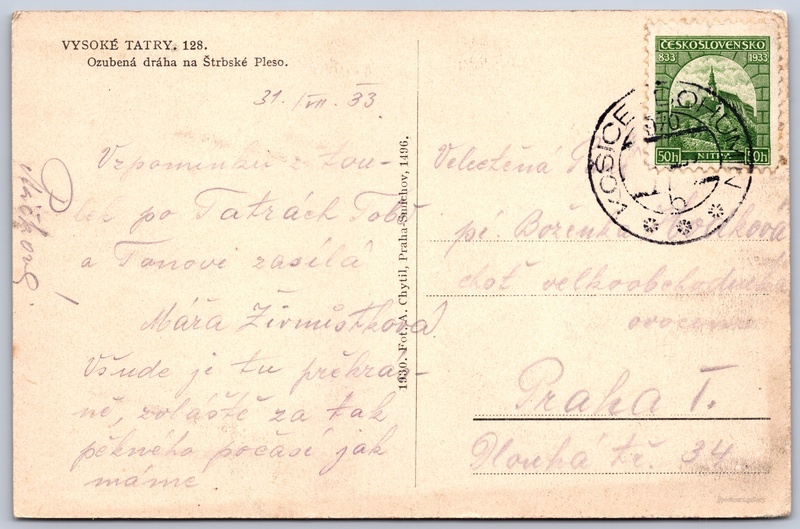 VYSOKÉ TATRY. 128.
Ozubená dráha na Štrbské Pleso.
31. VII. 33
Vzpomínku z tou-
lek po Tatrách Tobě
a Tonovi zasílá
Máňa
Všude je tu překrás-
ně, zvláště za tak
pěkného počasí jak
máme.
1930. Fot. A. Chytil, Praha-Smíchov, 1496.
ČESKOSLOVENSKO
833 1933
50h NITRA 50h
KOŠICE
b
Velectěná
pí. Boženka
choť velkoobchodníka
Praha I.
Dlouhá tř. 34